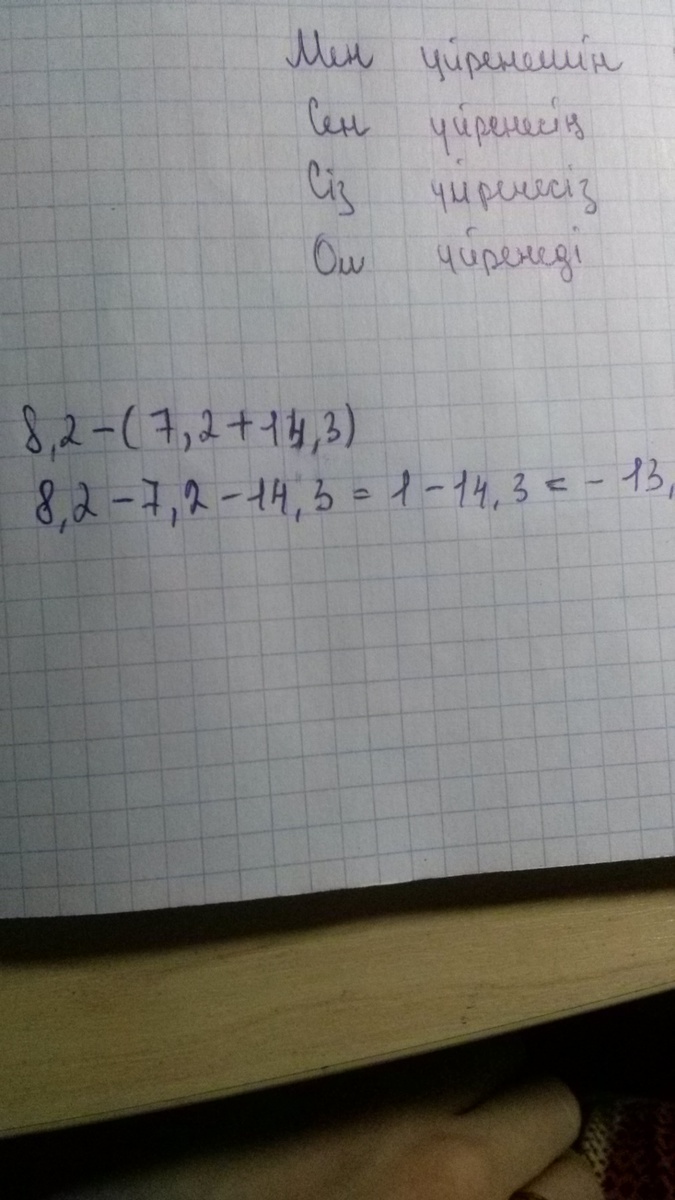 Мен үйренемін
Сен үйренесің
Сіз үйренесіз
Ол үйренеді
8,2-(7,2+14,3)
8,2-7,2-14,3=1-14,3=-13,